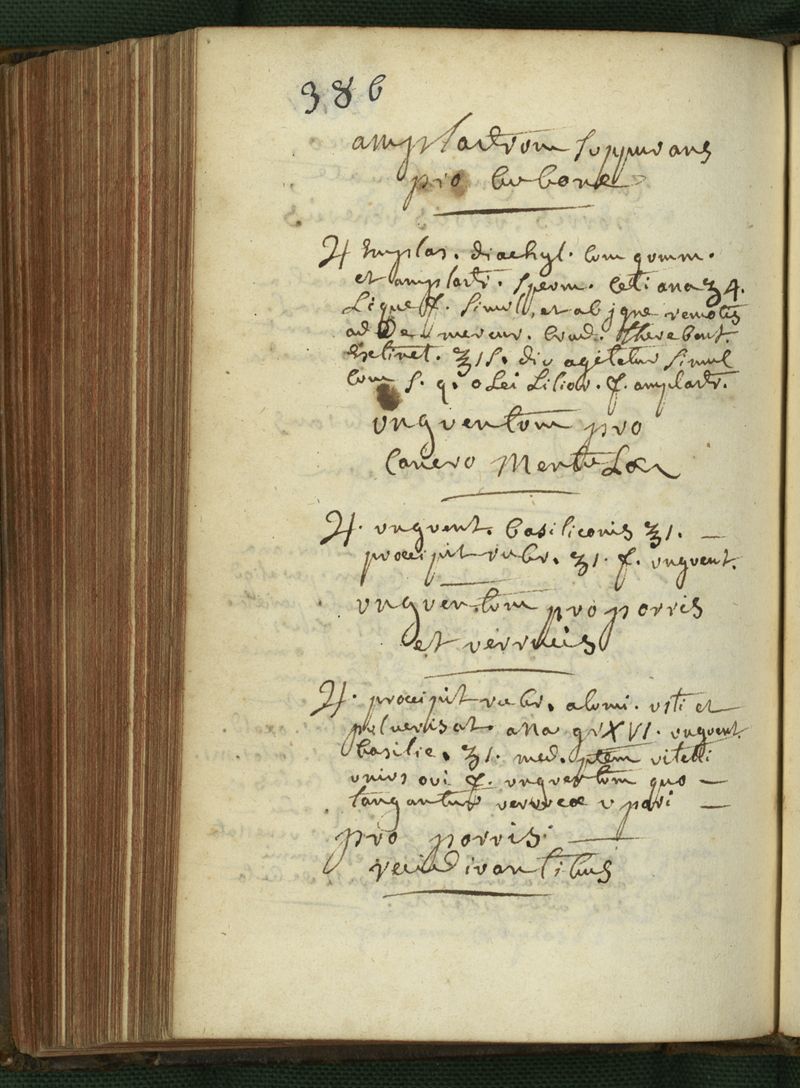 386
amplastrum suppurans
pro bubone
♃ Emplas. diachyl. cum gumm.
et amplastr. sperm. Ceti ana ʒ 4.
Lique f. simul, et ab igne remotis
adde mercur. crud. therebent.
Extinct. ʒ 1 S. diu agitetur simul
cum S. q. olei Lilior. f. amplastr.
unguentum pro
Cancro Mentulæ
♃. unguent. basiliconis ʒ 1.
præcipit rubr. ʒ 1. f. unguent.
unguentum pro porris
et verrucis
♃. præcipit rubr. alumi. usti et
pulverisat ana gr XVI. unguent.
basilic. ʒ 1. med. ptem vitelli
unius ovi f. unguentum quo
tangantur verrucæ
pro porris
recidivantibus